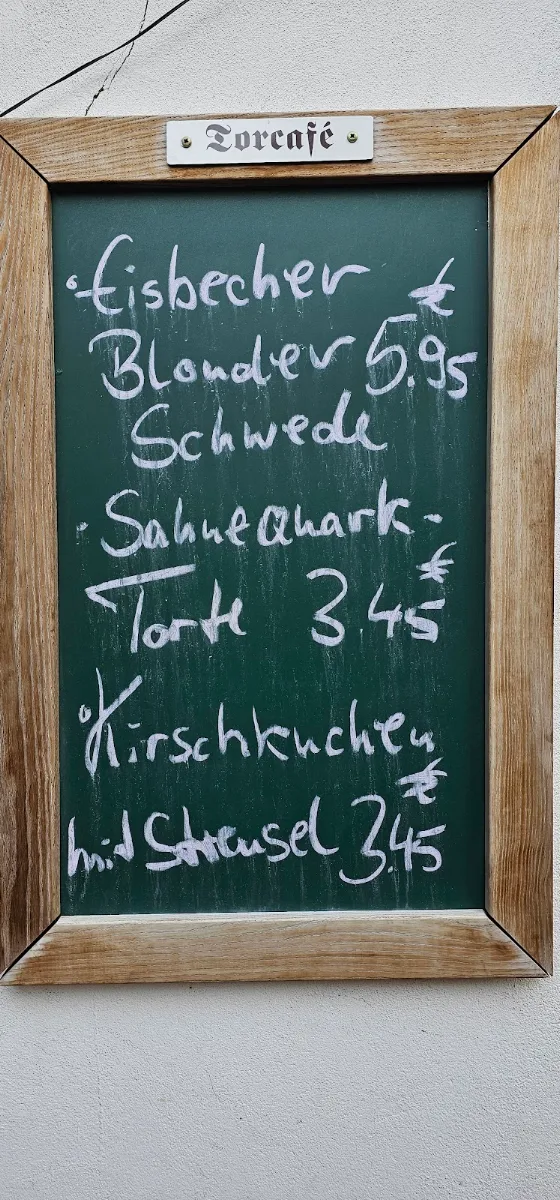 Torcafé
• Eisbecher €
Blonder 5.95
Schwede
• Sahnequark-
€
Torte 3 45
• Kirschkuchen
€
mit Streusel 3.45